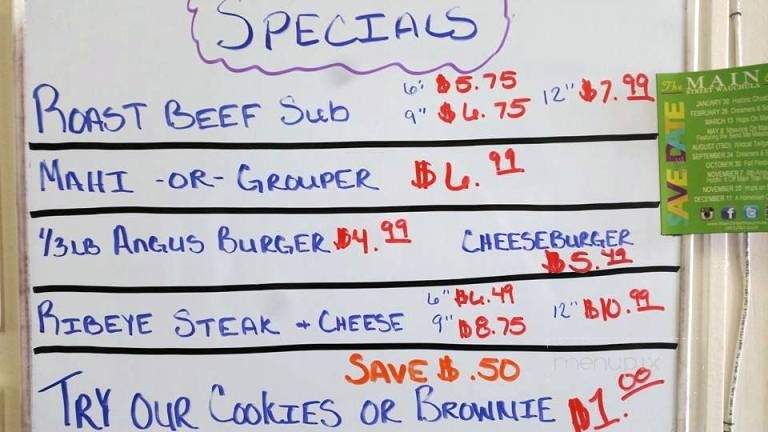 SPECIALS
ROAST BEEF SUB 6" $5.75 12" $7.99
9" $6.75
MAHI -OR- GROUPER $6.99
1/3 LB ANGUS BURGER $4.99 CHEESEBURGER
$5.49
RIBEYE STEAK + CHEESE 6" $6.49 12" $10.99
9" $8.75
SAVE $.50
TRY OUR COOKIES OR BROWNIE $1.00
The MAIN
STREET WAUCHULA
SAVE DATE
JANUARY
FEBRUARY
MARCH
MAY
AUGUST (TBD)
SEPTEMBER 24
OCTOBER
NOVEMBER
NOVEMBER
DECEMBER
menupix